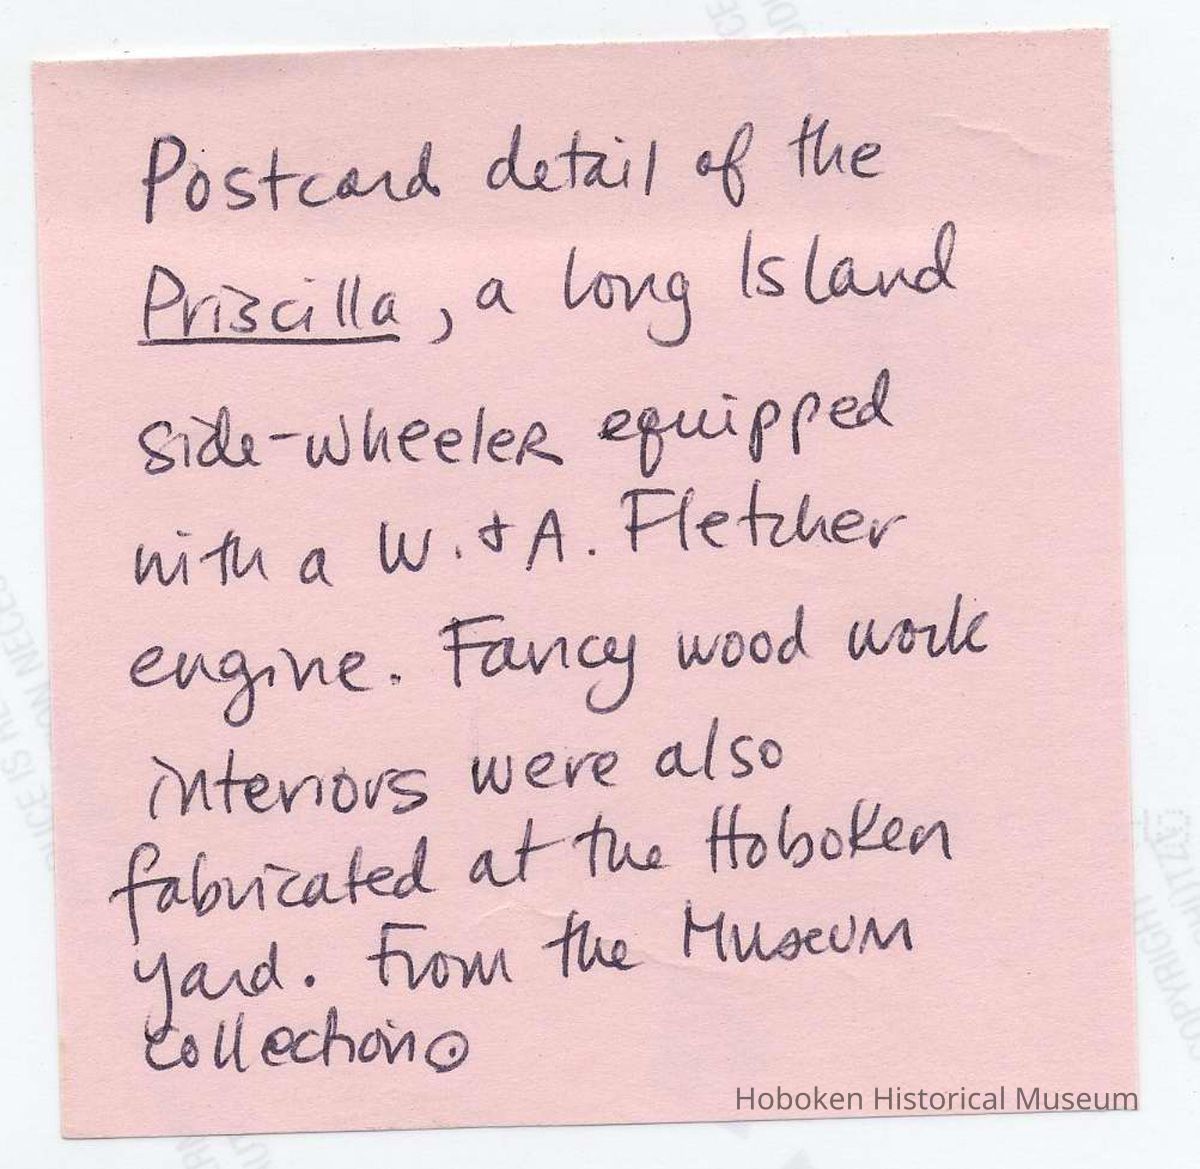 Postcard detail of the
Priscilla, a long Island
side-wheeler equipped
with a W. & A. Fletcher
engine. Fancy wood work
interiors were also
fabricated at the Hoboken
yard. From the Museum
collection.
Hoboken Historical Museum